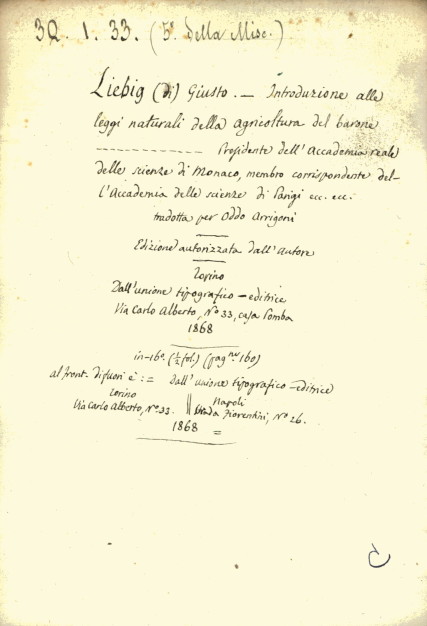 3Q. 1. 33. (5ª della Misc.)
Liebig (di) Giusto. — Introduzione alle
leggi naturali della agricoltura del barone
------------ Presidente dell'Accademia reale
delle scienze di Monaco, membro corrispondente del-
l'Accademia delle scienze di Parigi ecc. ecc.
tradotta per Oddo Arrigoni
Edizione autorizzata dall'autore
Torino
Dall'unione tipografico-editrice
Via Carlo Alberto, Nº 33, casa Pomba
1868
in-16º (½ fol.) (pag.ne 160)
al front. di fuori è := Dall'unione tipografico-editrice
Torino || Napoli
Via Carlo Alberto, Nº 33. || Strada Fiorentini, Nº 26.
1868 =
C